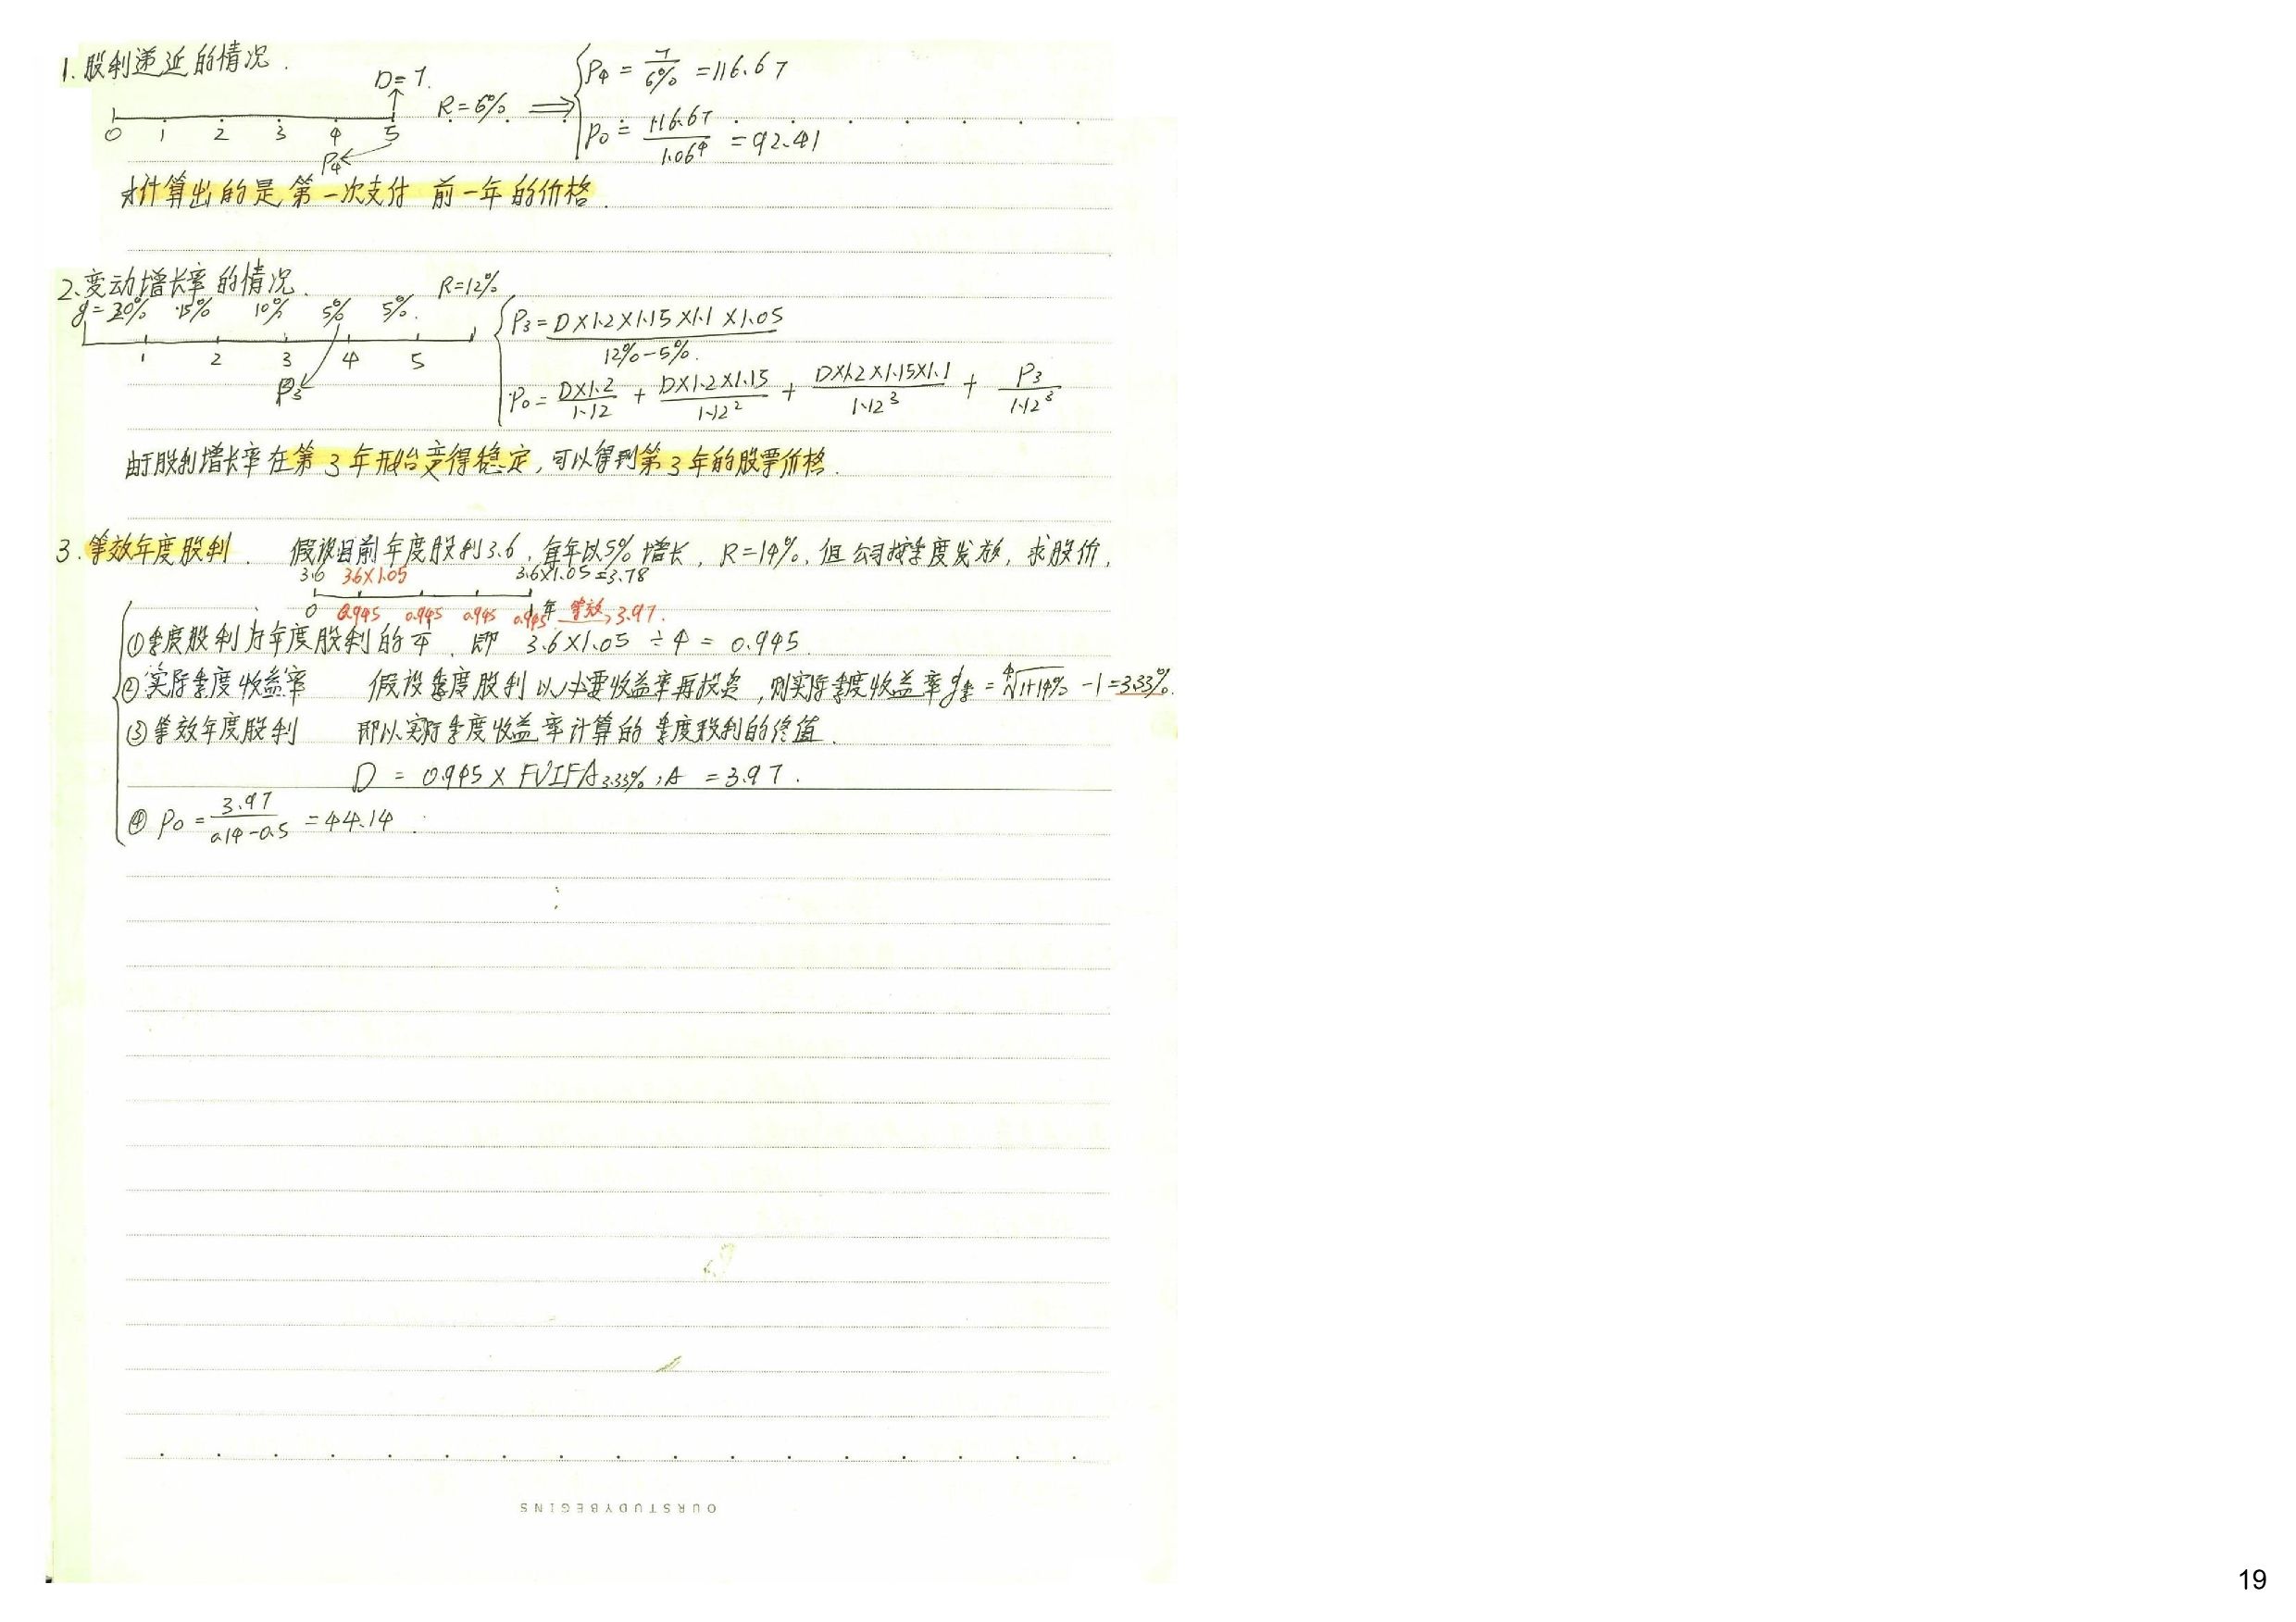 1. 股利递延的情况.
D=7.
0 1 2 3 4 5
P4
R=6% ⟹
P4 = 7/6% = 116.67
P0 = 116.67/1.06^4 = 92.41
计算出的是第一次支付 前一年的价格.
2. 变动增长率的情况.
g=20% 15% 10% 5% 5%. R=12%
1 2 3 4 5
P3
P3 = D×1.2×1.15×1.1×1.05/12%-5%.
P0 = D×1.2/1.12 + D×1.2×1.15/1.12^2 + D×1.2×1.15×1.1/1.12^3 + P3/1.12^3
由于股利增长率在第3年开始变得稳定, 可以得到第3年的股票价格.
3. 等效年度股利. 假设目前年度股利3.6, 每年以5%增长, R=14%, 但公司按季度发放, 求股价,
3.6 3.6×1.05 3.6×1.05=3.78
0 0.945 0.945 0.945 0.945 1年 等效 3.97.
①季度股利为年度股利的1/4, 即 3.6×1.05÷4=0.945.
②实际季度收益率 假设季度股利以必要收益率再投资, 则实际季度收益率g季=⁴√1+14% -1=3.33%.
③等效年度股利 即以实际季度收益率计算的季度股利的终值.
D = 0.945×FVIFA3.33%,4 = 3.97.
④ P0 = 3.97/0.14-0.5 = 44.14
OURSTUDYBEGINS
19